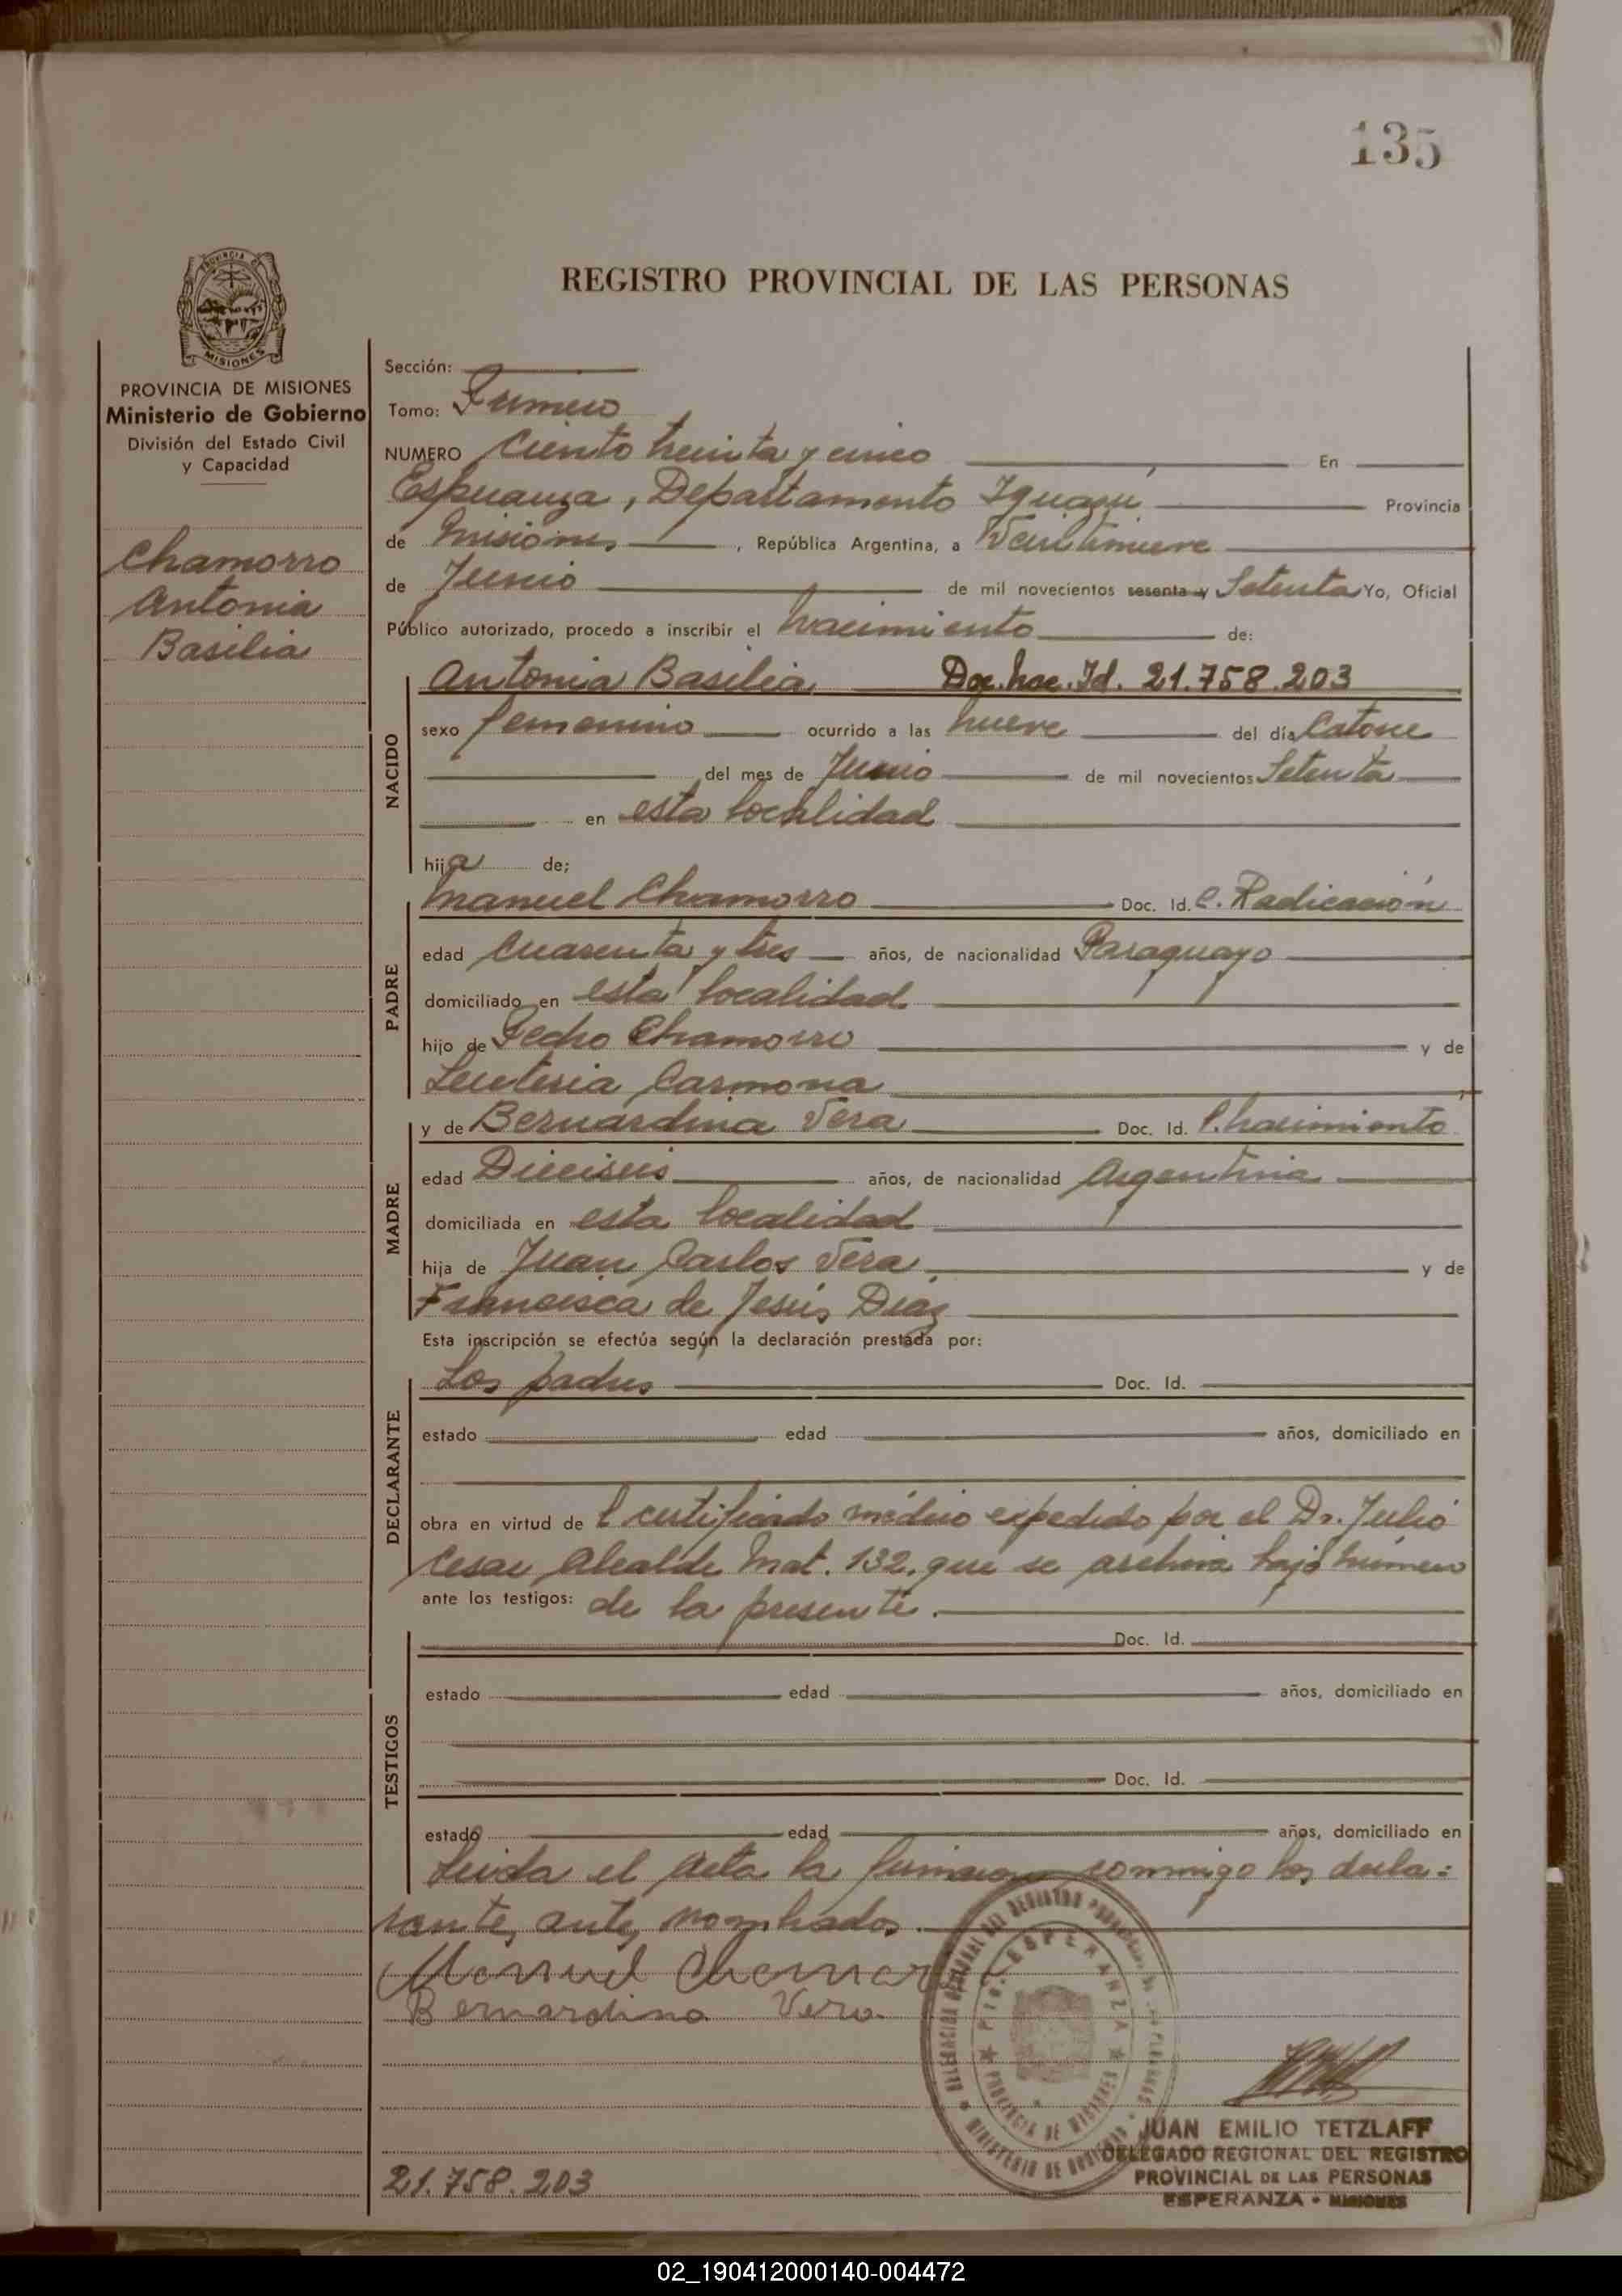 135
REGISTRO PROVINCIAL DE LAS PERSONAS
PROVINCIA DE MISIONES
Ministerio de Gobierno
División del Estado Civil
y Capacidad
Chamorro
Antonia
Basilia
Sección:
Tomo: Primero
NUMERO Ciento treinta y cinco En
Esperanza, Departamento Iguazú Provincia
de Misiones, República Argentina, a Veintinueve
de Junio de mil novecientos sesenta y Setenta Yo, Oficial
Público autorizado, procedo a inscribir el Nacimiento de:
NACIDO
Antonia Basilia Doc. Nac. Id. 21.758.203
sexo femenino ocurrido a las nueve del día Catorce
del mes de Junio de mil novecientos Setenta
en esta localidad
hija de;
PADRE
Manuel Chamorro Doc. Id. C. Radicación
edad Cuarenta y tres años, de nacionalidad Paraguayo
domiciliado en esta localidad
hijo de Pedro Chamorro y de
Leuteria Carmona
MADRE
y de Bernardina Vera Doc. Id. P. Nacimiento
edad Dieciseis años, de nacionalidad Argentina
domiciliada en esta localidad
hija de Juan Carlos Vera y de
Francisca de Jesús Diaz
Esta inscripción se efectúa según la declaración prestada por:
DECLARANTE
Los padres Doc. Id.
estado edad años, domiciliado en
obra en virtud de l certificado médico expedido por el Dr. Julio
Cesar Alcalde Mat. 132. que se archiva bajo número
ante los testigos: de la presente.
TESTIGOS
Doc. Id.
estado edad años, domiciliado en
Doc. Id.
estado edad años, domiciliado en
Leida el Acta la firman conmigo los decla=
rantes antes nombrados.
Manuel Chamorro
Bernardina Vera
PROVINCIA DE MISIONES
ESPERANZA
JUAN EMILIO TETZLAFF
DELEGADO REGIONAL DEL REGISTRO
PROVINCIAL DE LAS PERSONAS
ESPERANZA - MISIONES
21.758.203
02_190412000140-004472